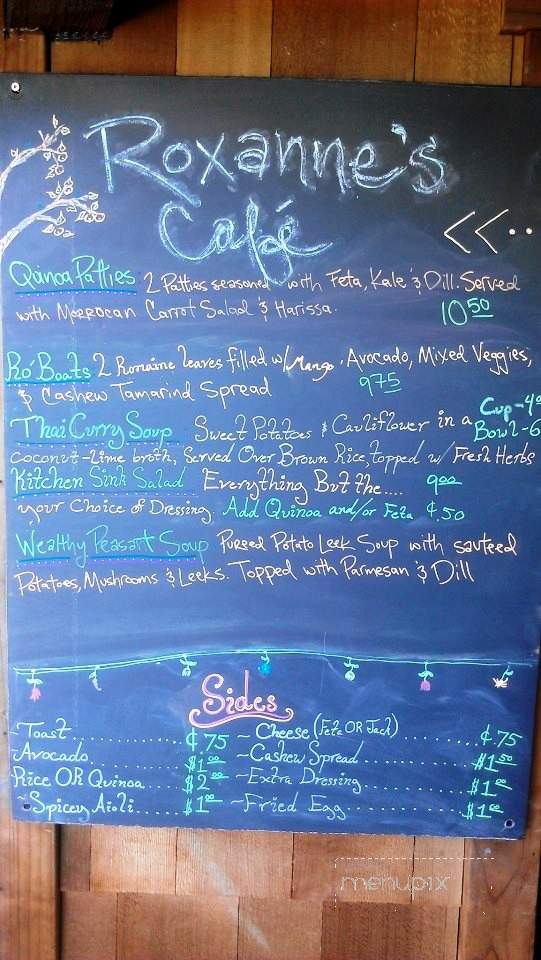 Roxanne's
Café
<<..
Quinoa Patties 2 Patties seasoned with Feta, Kale & Dill. Served
with Morrocan Carrot Salad & Harissa. 10 50
Ro' Boats 2 Romaine leaves filled w/ Mango, Avocado, Mixed Veggies,
& Cashew Tamarind Spread 9 75
Cup - 4
Thai Curry Soup Sweet Potatoes & Cauliflower in a Bowl - 6
coconut-lime broth, Served Over Brown Rice, topped w/ Fresh Herbs
Kitchen Sink Salad Everything But the.... 9 00
your Choice of Dressing Add Quinoa and/or Feta ¢.50
Wealthy Peasant Soup Pureed Potato Leek Soup with sauteed
Potatoes, Mushrooms & Leeks. Topped with Parmesan & Dill
Sides
~Toast ¢.75 ~Cheese (Feta OR Jack) ¢.75
~Avocado $1 00 ~Cashew Spread $1 50
Rice OR Quinoa $2 00 ~Extra Dressing $1 00
~Spicey Aioli $1 00 ~Fried Egg $1 00
menupix